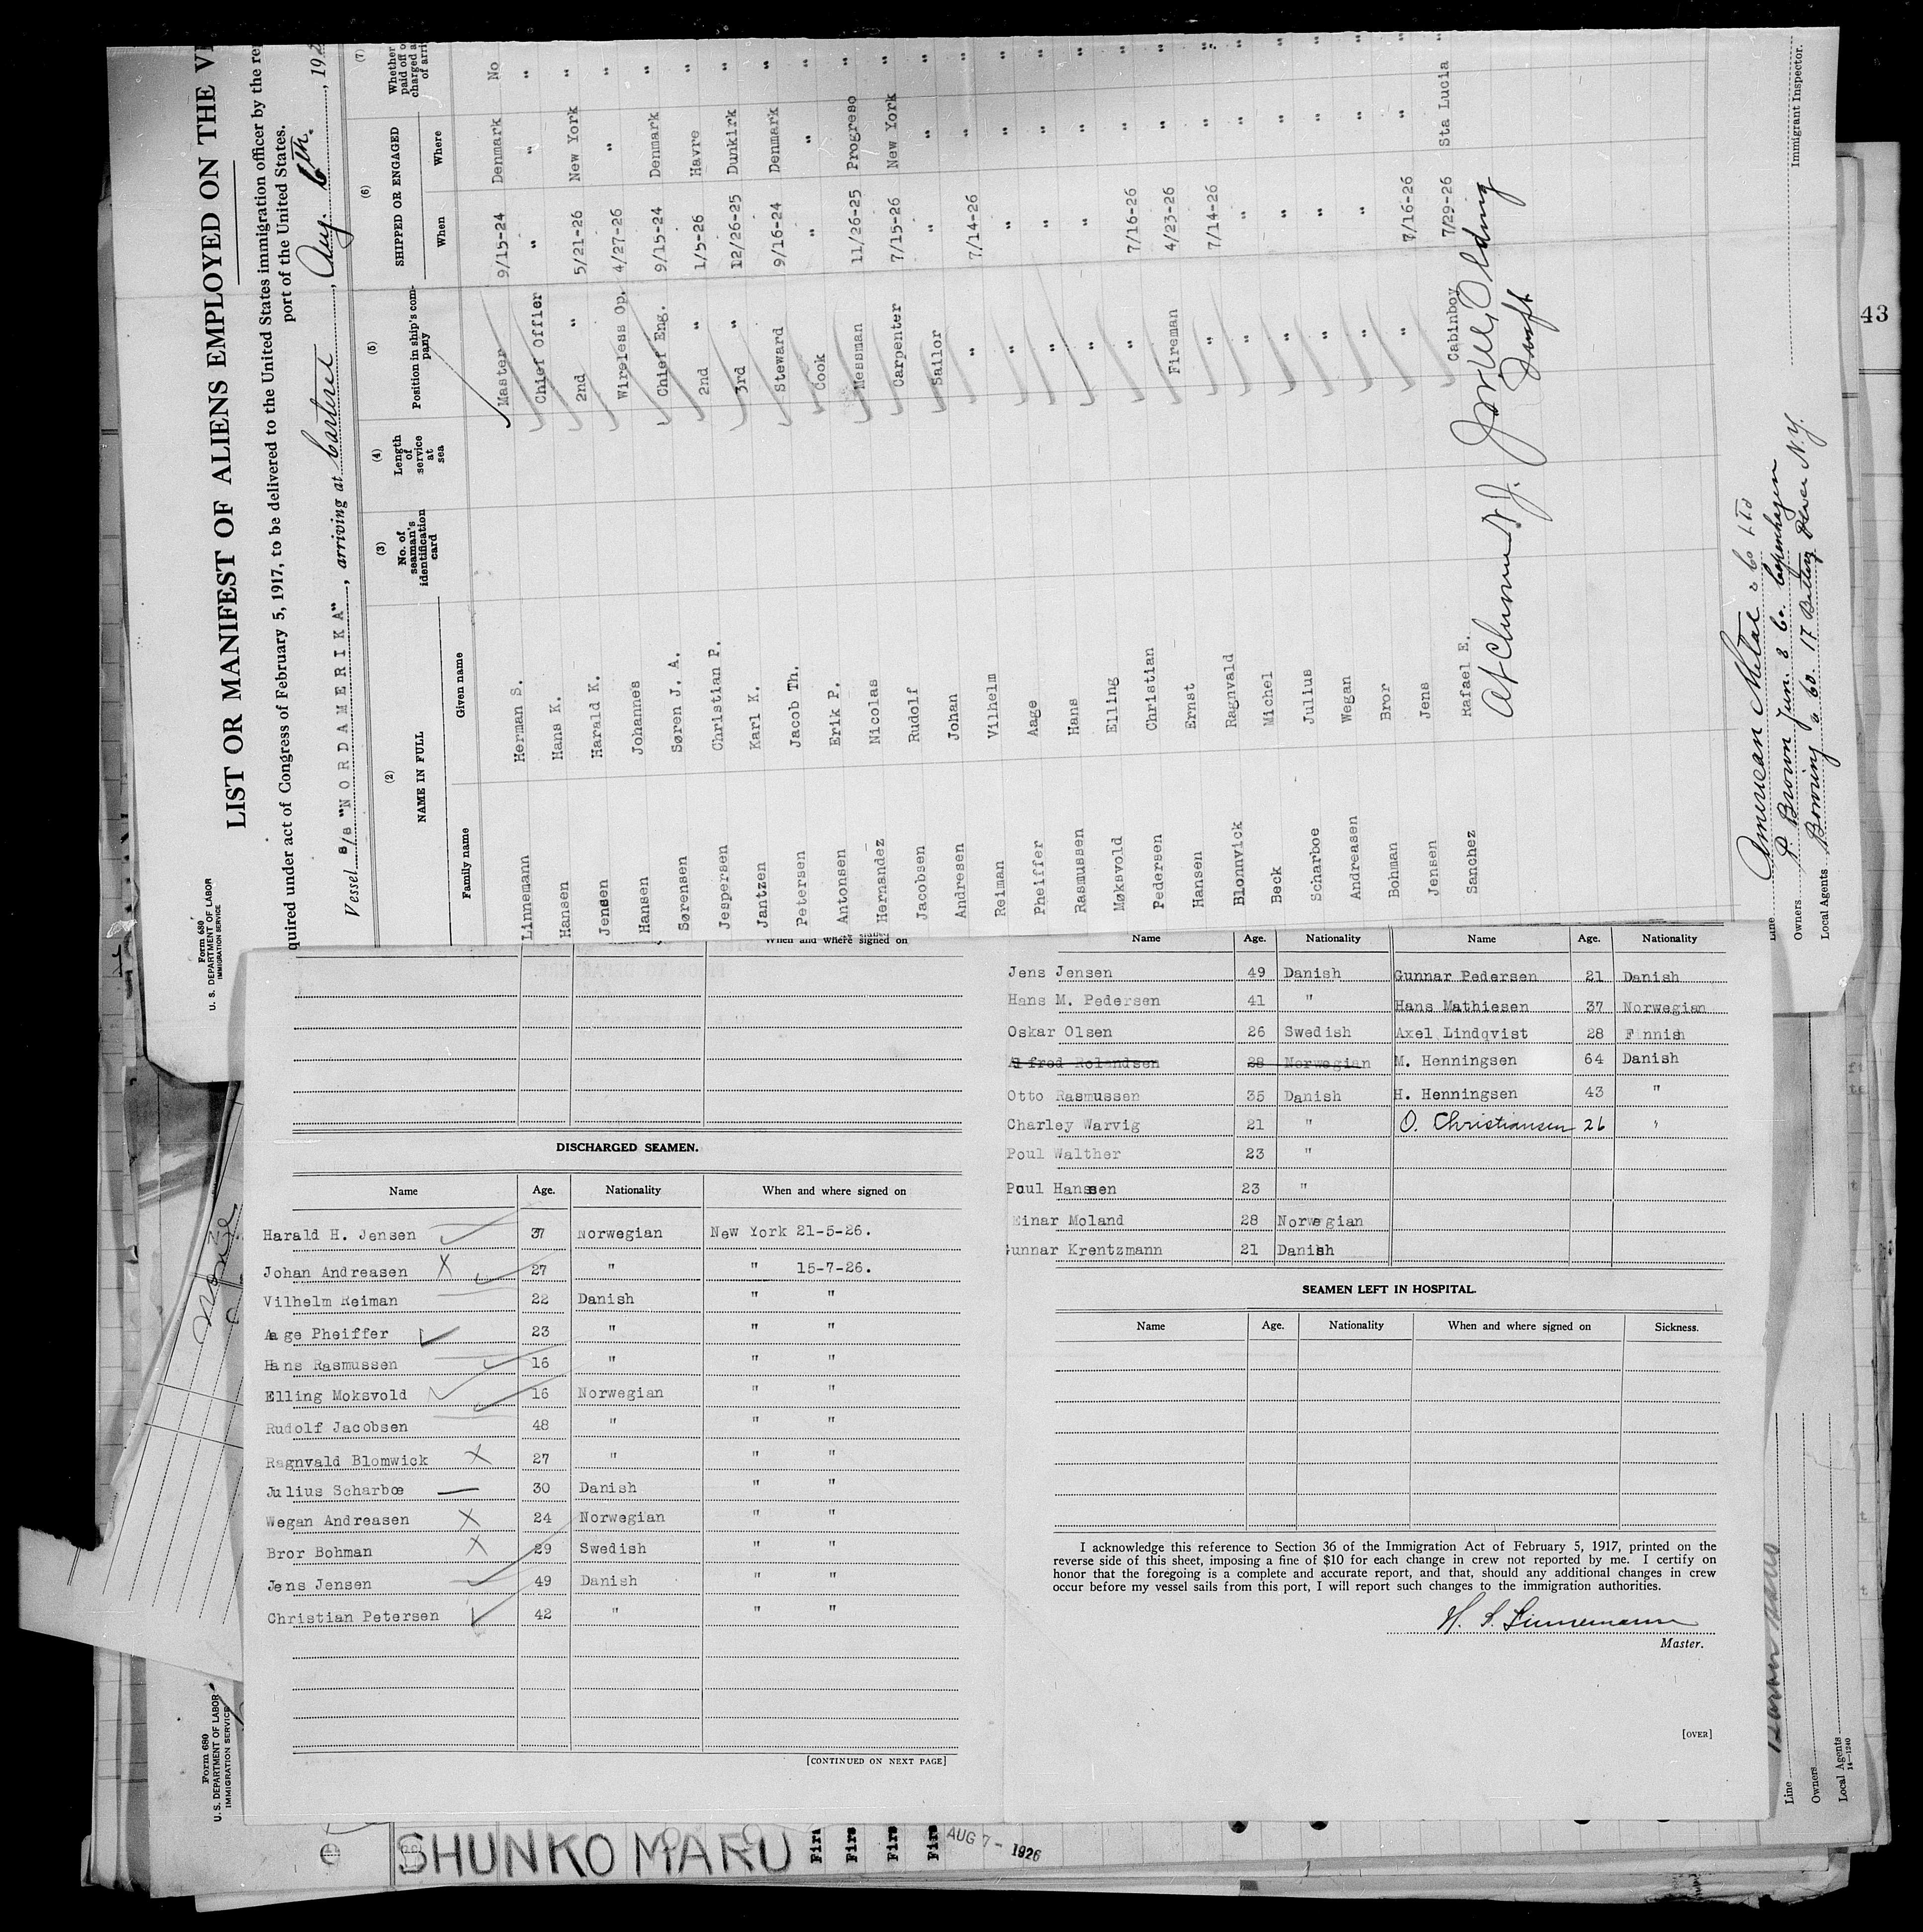 Form 680
U. S. DEPARTMENT OF LABOR
IMMIGRATION SERVICE
LIST OR MANIFEST OF ALIENS EMPLOYED ON THE
quired under act of Congress of February 5, 1917, to be delivered to the United States immigration officer by the
port of the United States.
Vessel S/S "NORDAMERIKA", arriving at Carteret, Aug. 6th., 192
(2) (3) (4) (5) (6) (7)
NAME IN FULL No. of seaman's identification card Length of service at sea Position in ship's company SHIPPED OR ENGAGED Whether paid off
Family name Given name When Where
Linnemann Herman S. Master 9/15-24 Denmark No
Hansen Hans K. Chief Offier " " "
Jensen Harald K. 2nd " 5/21-26 New York "
Hansen Johannes Wireless Op. 4/27-26 " "
Sørensen Søren J. A. Chief Eng. 9/15-24 Denmark "
Jespersen Christian P. 2nd " 1/5-26 Havre "
Jantzen Karl K. 3rd " 12/26-25 Dunkirk "
Petersen Jacob Th. Steward 9/16-24 Denmark "
Antonsen Erik P. Cook " " "
Hernandez Nicolas Messman 11/26-25 Progreso "
Jacobsen Rudolf Carpenter 7/15-26 New York "
Andresen Johan Sailor " " "
Reiman Vilhelm " 7/14-26 " "
Pheiffer Aage " " " "
Rasmussen Hans " " " "
Møksvold Elling " " " "
Pedersen Christian " 7/16-26 " "
Hansen Ernst Fireman 4/23-26 " "
Blonnvick Ragnvald " 7/14-26 " "
Beck Michel " " " "
Scharboe Julius " " " "
Andreasen Wegan " " " "
Bohman Bror " " " "
Jensen Jens " 7/16-26 " "
Sanchez Rafael E. Cabinboy 7/29-26 Sta Lucia "
N.J.
Line American Metal & Co Ltd
Owners P. Brown Jun. & Co. Copenhagen
Local Agents Bowring & Co. 17 Battery Place N.Y.
Immigrant Inspector.
43
When and where signed on
DISCHARGED SEAMEN.
Name Age. Nationality When and where signed on
Harald H. Jensen 37 Norwegian New York 21-5-26.
Johan Andreasen X 27 " " 15-7-26.
Vilhelm Reiman 22 Danish " "
Aage Pheiffer 23 " " "
Hans Rasmussen 16 " " "
Elling Moksvold 16 Norwegian " "
Rudolf Jacobsen 48 " " "
Ragnvald Blomwick X 27 " " "
Julius Scharboe 30 Danish " "
Wegan Andreasen X 24 Norwegian " "
Bror Bohman X 29 Swedish " "
Jens Jensen 49 Danish " "
Christian Petersen 42 " " "
[CONTINUED ON NEXT PAGE]
Name Age. Nationality Name Age. Nationality
Jens Jensen 49 Danish Gunnar Pedersen 21 Danish
Hans M. Pedersen 41 " Hans Mathiesen 37 Norwegian
Oskar Olsen 26 Swedish Axel Lindqvist 28 Finnish
Alfred Rolandsen 28 Norwegian M. Henningsen 64 Danish
Otto Rasmussen 35 Danish H. Henningsen 43 "
Charley Warvig 21 " O. Christiansen 26 "
Poul Walther 23 "
Poul Hansen 23 "
Einar Moland 28 Norwegian
Gunnar Krentzmann 21 Danish
SEAMEN LEFT IN HOSPITAL.
Name Age. Nationality When and where signed on Sickness.
I acknowledge this reference to Section 36 of the Immigration Act of February 5, 1917, printed on the
reverse side of this sheet, imposing a fine of $10 for each change in crew not reported by me. I certify on
honor that the foregoing is a complete and accurate report, and that, should any additional changes in crew
occur before my vessel sails from this port, I will report such changes to the immigration authorities.
H. S. Linnemann
Master.
[OVER]
Form 680
U. S. DEPARTMENT OF LABOR
IMMIGRATION SERVICE
Line
Owners
Local Agents
14-1240
SHUNKO MARU
Firs Firs Firs
AUG 7 - 1926